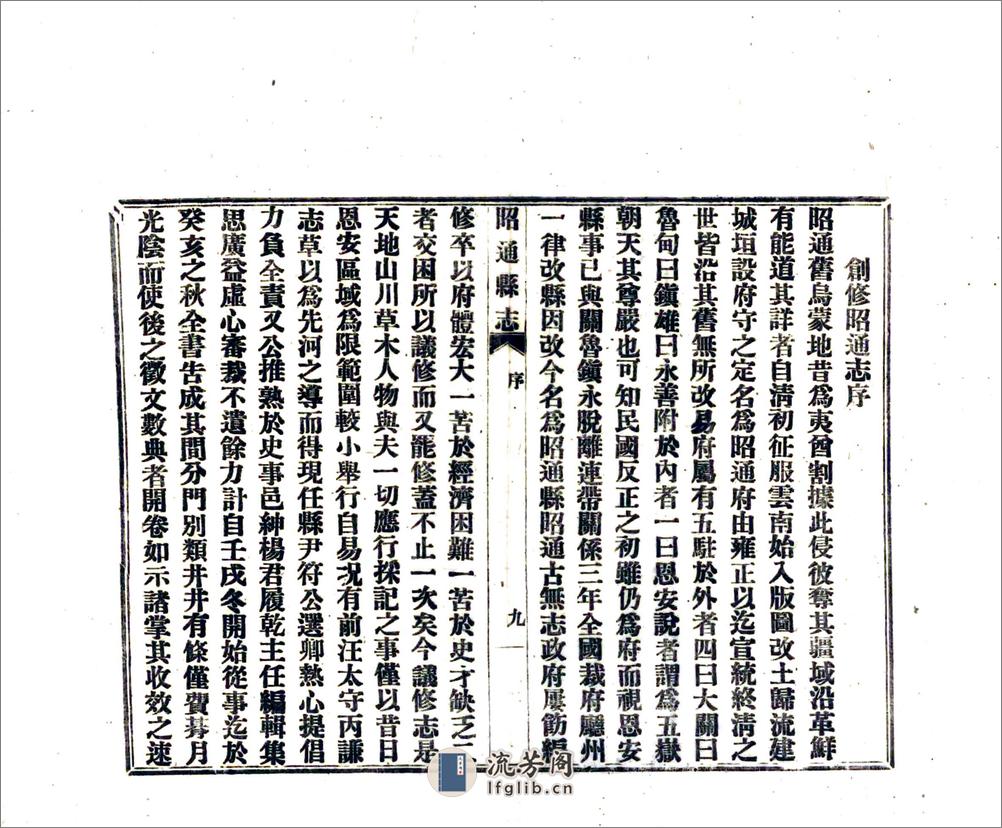 創修昭通志序
昭通舊烏蒙地昔爲夷酋割據此侵彼奪其疆域沿革鮮
有能道其詳者自清初征服雲南始入版圖改土歸流建
城垣設府守之定名爲昭通府由雍正以迄宣統終清之
世皆沿其舊無所改易府屬有五駐於外者四曰大關曰
魯甸曰鎭雄曰永善附於內者一曰恩安說者謂爲五嶽
朝天其尊嚴也可知民國反正之初雖仍爲府而視恩安
縣事已與關魯鎭永脫離連帶關係三年全國裁府廳州
一律改縣因改今名爲昭通縣昭通古無志政府屢飭編
昭通縣志
序
九
修卒以府體宏大一苦於經濟困難一苦於史才缺乏二
者交困所以議修而又罷修蓋不止一次矣今議修志是
天地山川草木人物與夫一切應行採記之事僅以昔日
恩安區域爲限範圍較小舉行自易况有前汪太守丙謙
志草以爲先河之導而得現任縣尹符公選卿熱心提倡
力負全責又公推熟於史事邑紳楊君履乾主任編輯集
思廣益虛心審裁不遺餘力計自壬戌冬開始從事迄於
癸亥之秋全書告成其間分門別類井井有條僅費朞月
光陰而使後之徵文數典者開卷如示諸掌其收效之速
流芳阁
lfglib.cn